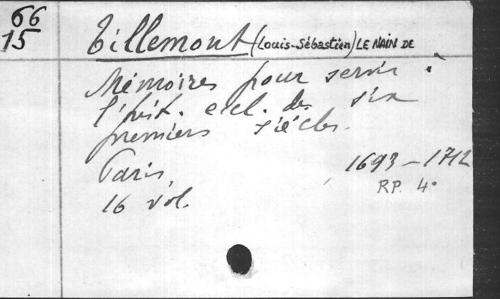 66
15
Tillemont (Louis-Sébastien) LE NAIN DE
Mémoires pour servir à
l'hist. eccl. des six
premiers siècles.
Paris, 1693-1712
16 vol. RP. 4°